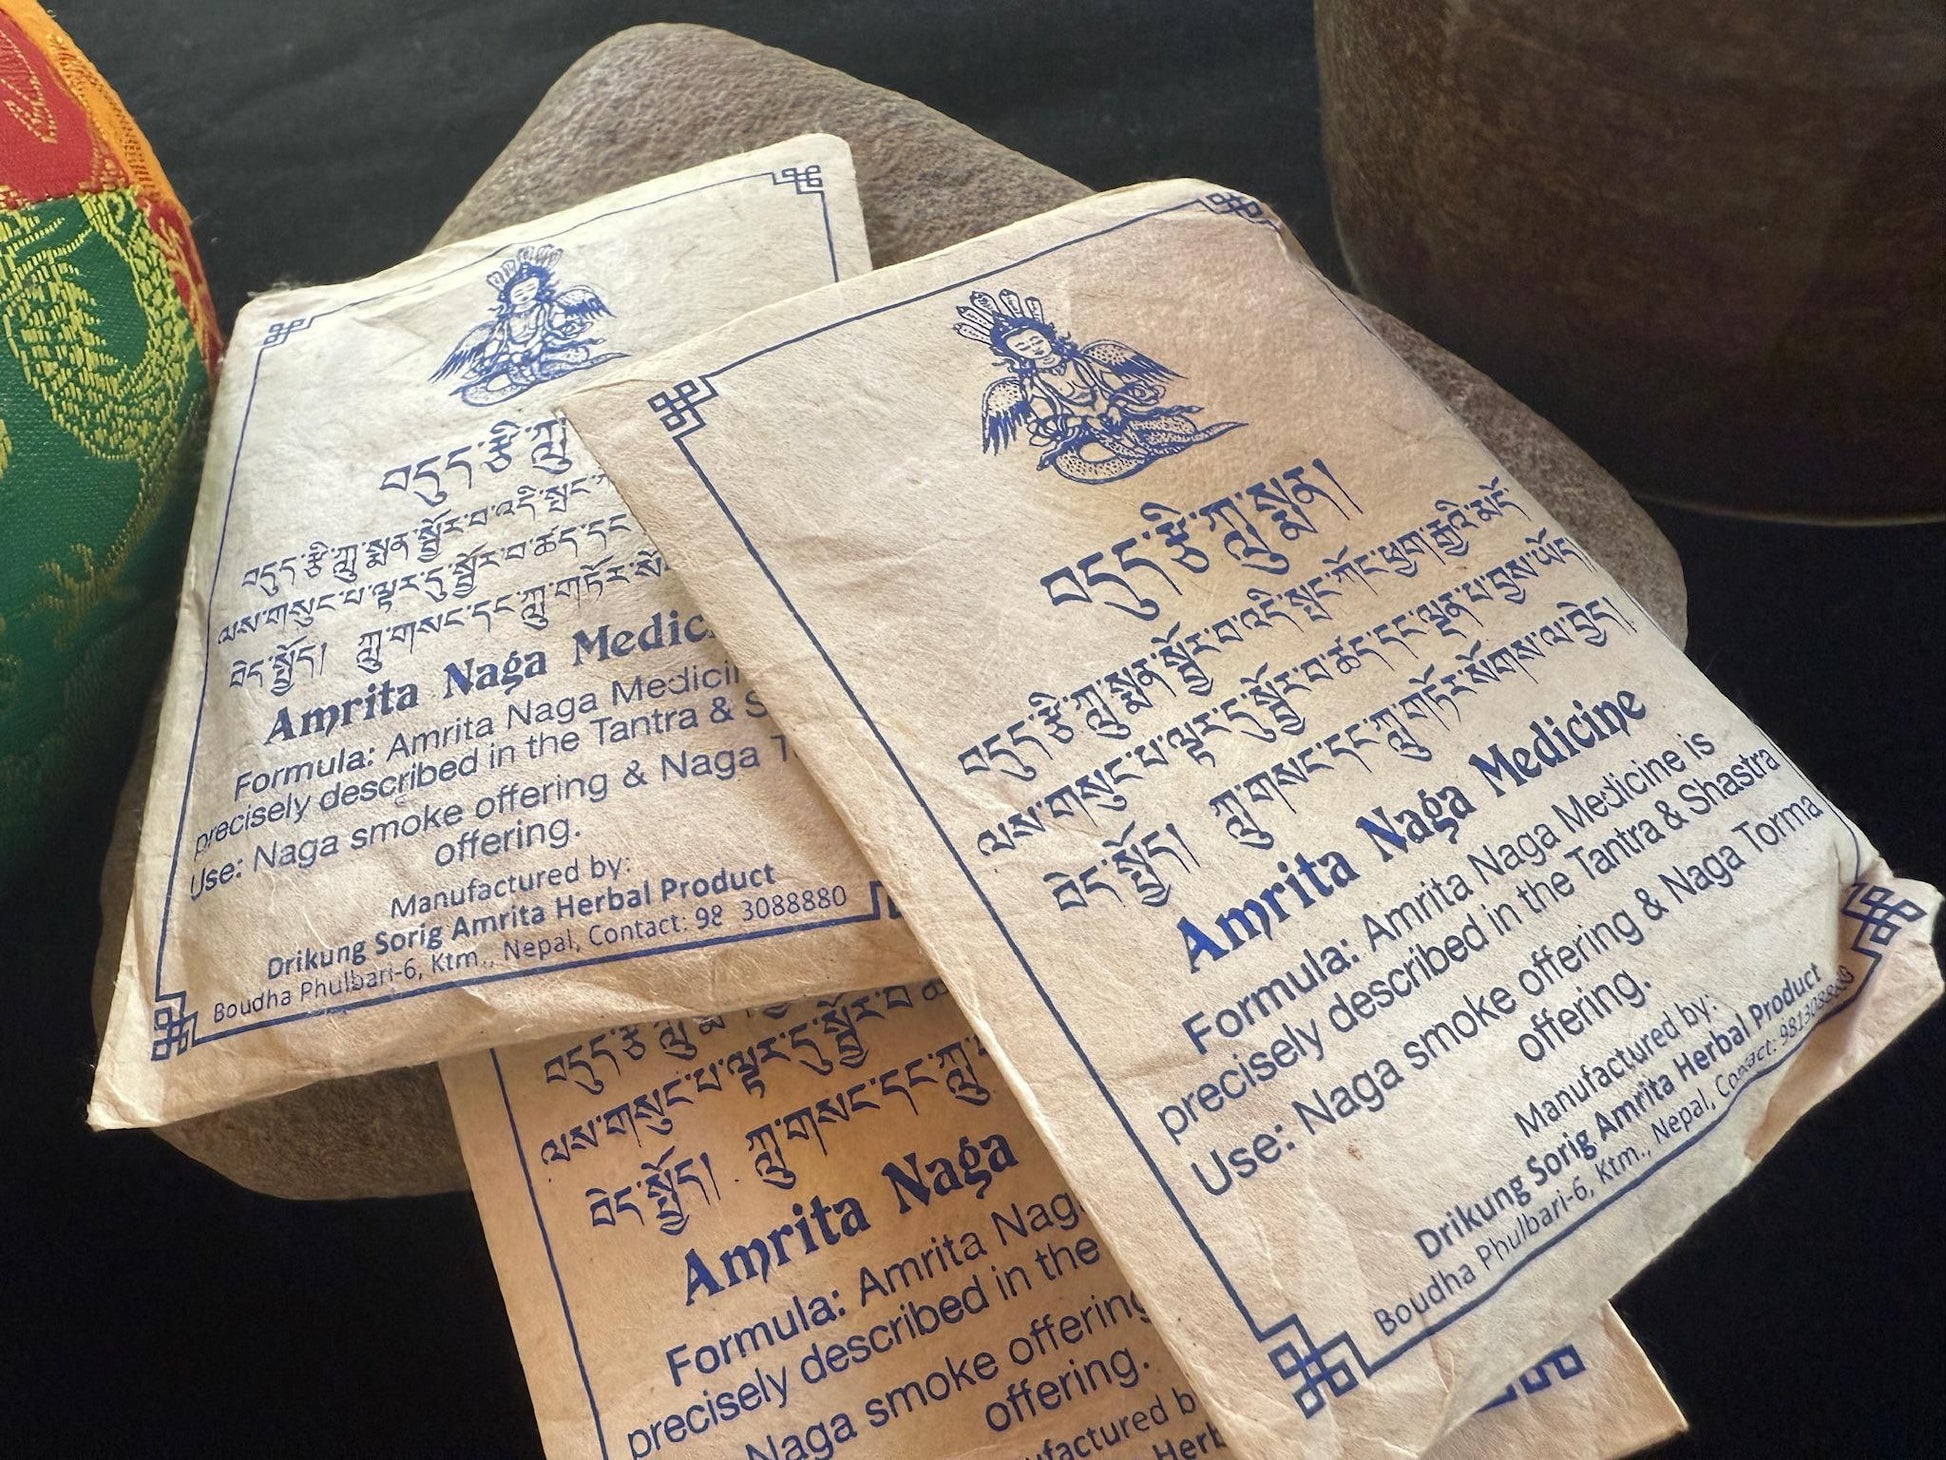 བདུད་རྩི་ཀླུ
བདུད་རྩི་ཀླུ་སྨན་སྦྱོར་བ་འདི་སྤང་
ལས་གསུང་པ་ལྟར་དུ་སྦྱོར་བ་ཚད་དང་
བེད་སྤྱོད། ཀླུ་གསང་དང་ཀླུ་གཏོར་
Amrita Naga
Formula: Amrita Naga
precisely described in the Tantra &
Use: Naga smoke offering & Naga
offering.
Manufactured by:
Drikung Sorig Amrita Herbal Product
Boudha Phulbari-6, Ktm., Nepal, Contact: 98 3088880
བདུད་རྩི་ཀླུ་སྨན།
བདུད་རྩི་ཀླུ་སྨན་སྦྱོར་བ་འདི་སྤང་ཀོང་ཕྱག་རྒྱའི་མདོ་
ལས་གསུང་པ་ལྟར་དུ་སྦྱོར་བ་ཚད་དང་ལྡན་པ་བྱས་ཡོད།
བེད་སྤྱོད། ཀླུ་གསང་དང་ཀླུ་གཏོར་སོགས་ལ་བྱེད།
Amrita Naga Medicine
Formula: Amrita Naga Medicine is
precisely described in the Tantra & Shastra
Use: Naga smoke offering & Naga Torma
offering.
Manufactured by:
Drikung Sorig Amrita Herbal Product
Boudha Phulbari-6, Ktm., Nepal, Contact:
བདུད་རྩི་ཀླུ་
ལས་གསུང་པ་ལྟར་དུ་སྦྱོར་བ་
བེད་སྤྱོད། ཀླུ་གསང་དང་ཀླུ་
Amrita Naga
Formula: Amrita
precisely described in the
Naga smoke offering
offering.